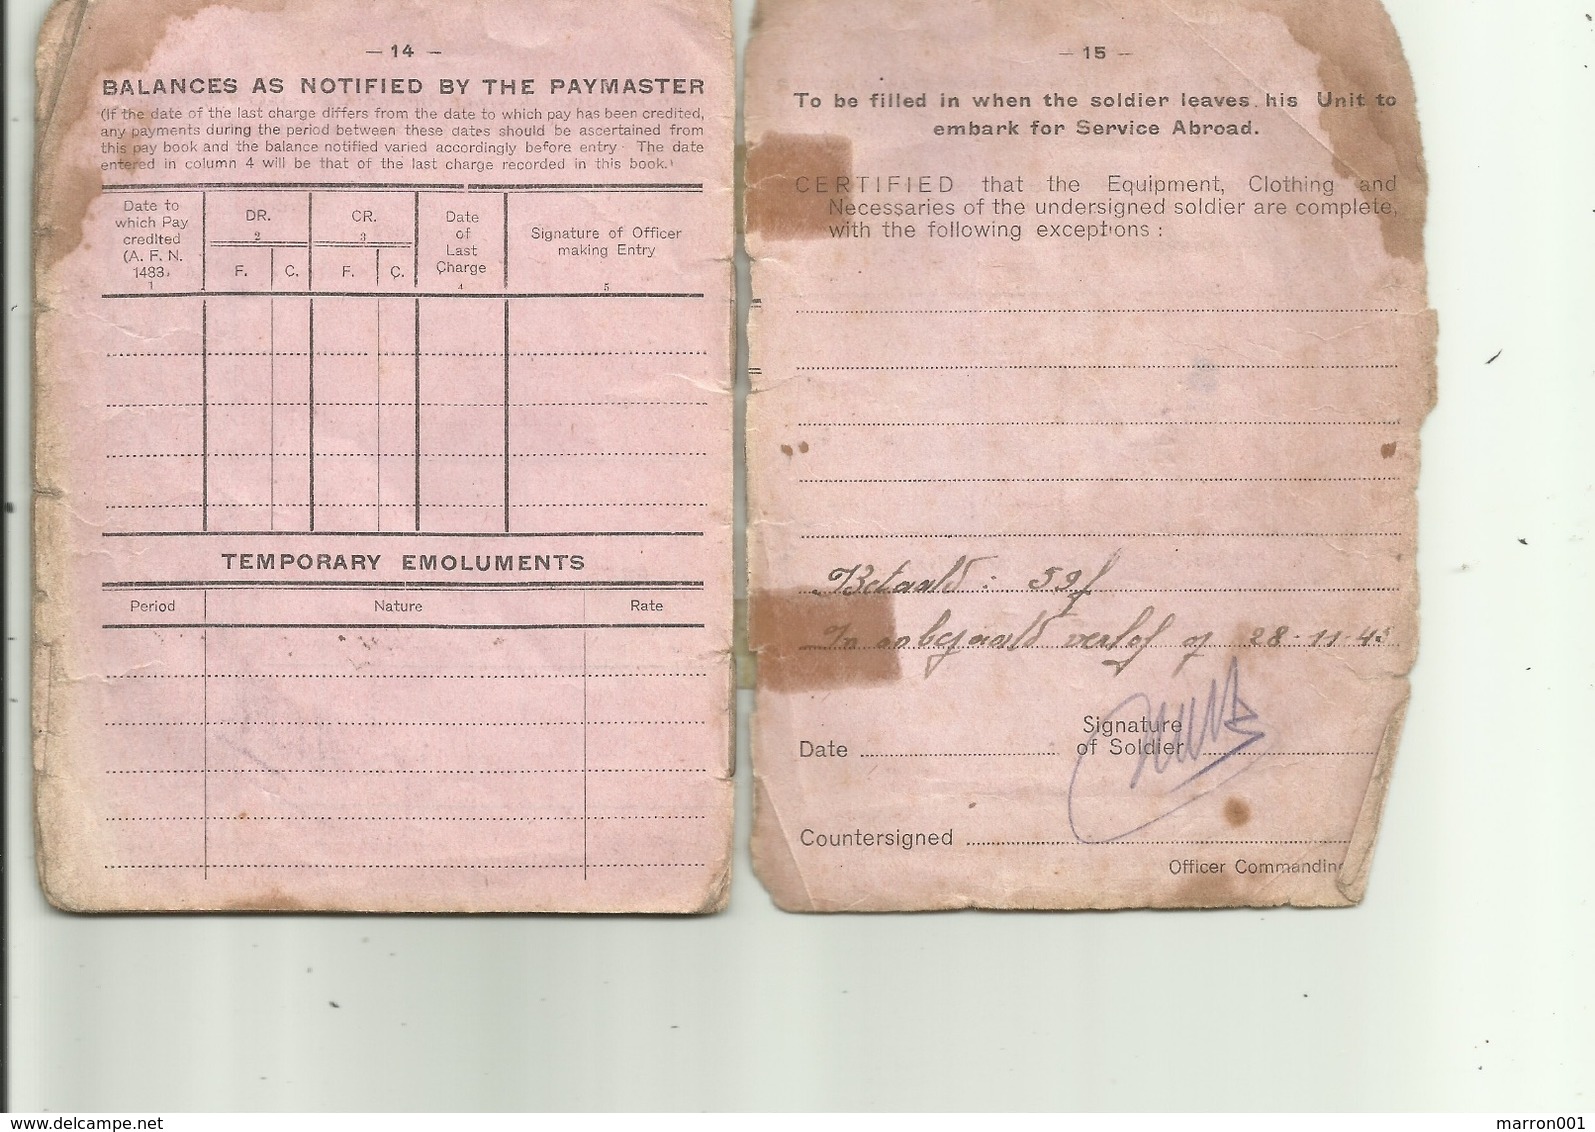 — 14 —
BALANCES AS NOTIFIED BY THE PAYMASTER
(If the date of the last charge differs from the date to which pay has been credited,
any payments during the period between these dates should be ascertained from
this pay book and the balance notified varied accordingly before entry. The date
entered in column 4 will be that of the last charge recorded in this book.)
Date to which Pay credited (A. F. N. 1483) 1
DR. 2
F. C.
CR. 3
F. C.
Date of Last Charge 4
Signature of Officer making Entry 5
TEMPORARY EMOLUMENTS
Period Nature Rate
— 15 —
To be filled in when the soldier leaves his Unit to
embark for Service Abroad.
CERTIFIED that the Equipment, Clothing and
Necessaries of the undersigned soldier are complete,
with the following exceptions :
Betaald : 59f
In onbepaald verlof op 28-11-45
Date
Signature
of Soldier
Countersigned
Officer Commanding
www.delcampe.net
marron001